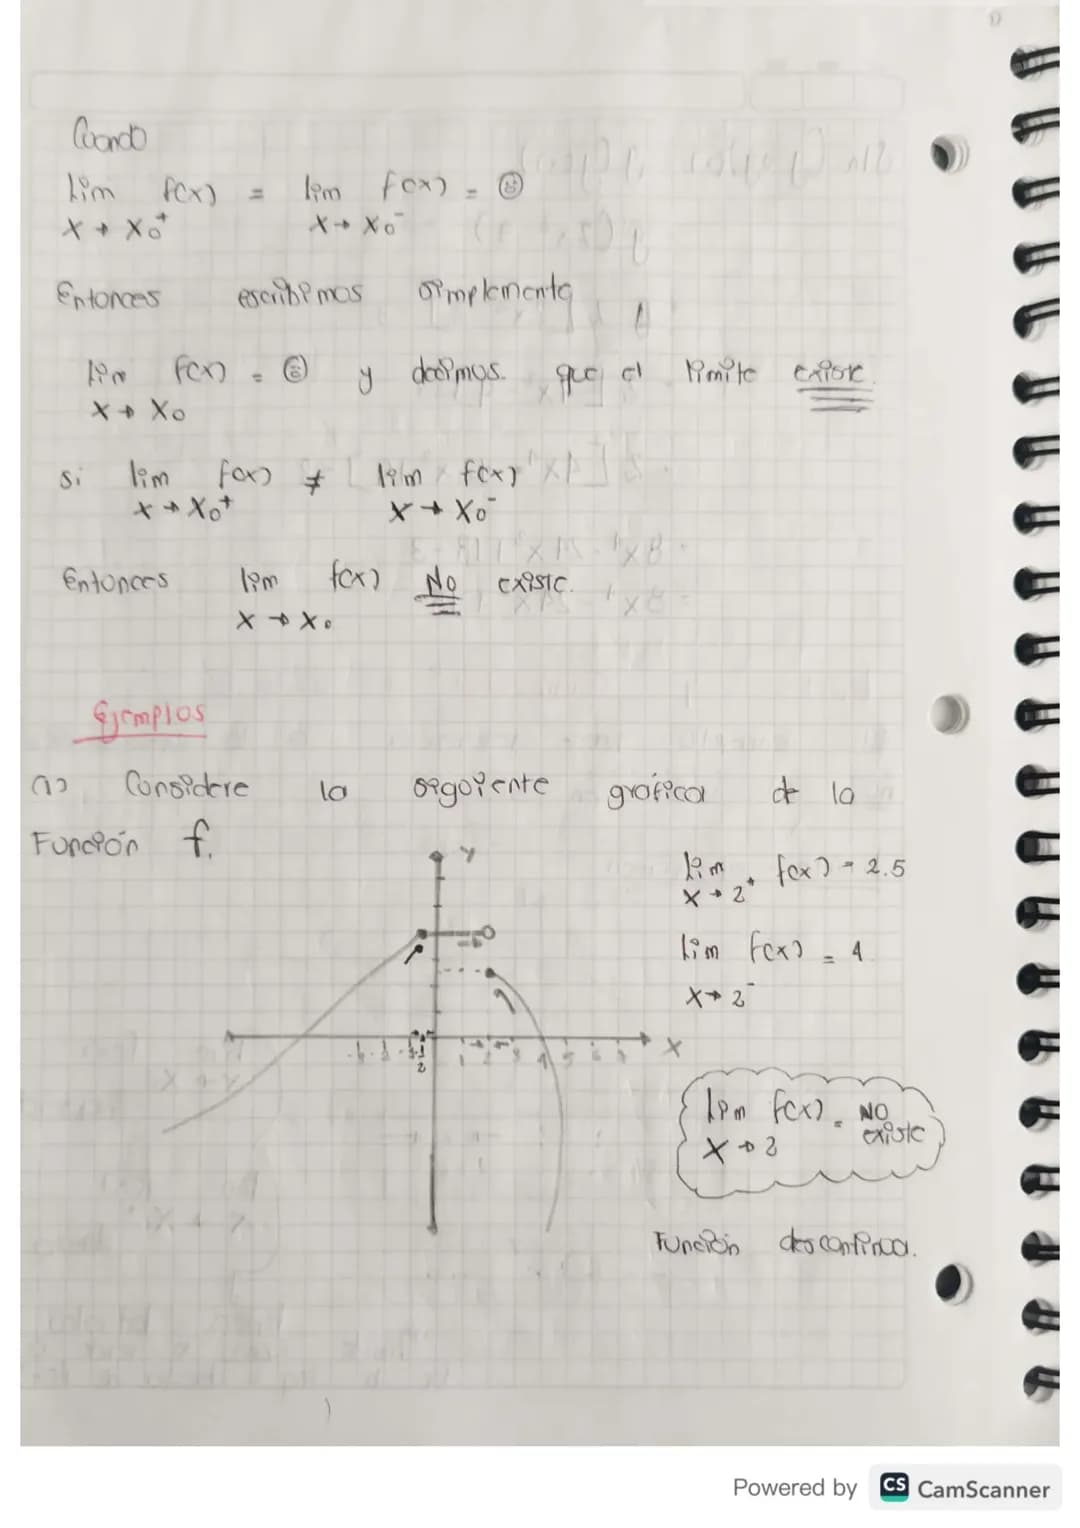 Cuando
lim f(x) = lim f(x) = ☺
x → x₀⁺ x → x₀⁻
Entonces escribimos simplemente
lim f(x) = ☺ y decimos que el limite existe
x → x₀
Si lim f(x) ≠ lim f(x)
x → x₀⁺ x → x₀⁻
Entonces lim f(x) No existe.
x → x₀
Ejemplos
1) Considere la siguiente gráfica de la
Función f.
y
lim f(x) = 2.5
x → 2⁺
lim f(x) = 4
x → 2⁻
1 2 3 4 5 6 7 x
lim f(x) = NO existe
x → 2
Función descontinua.
Powered by CS CamScanner